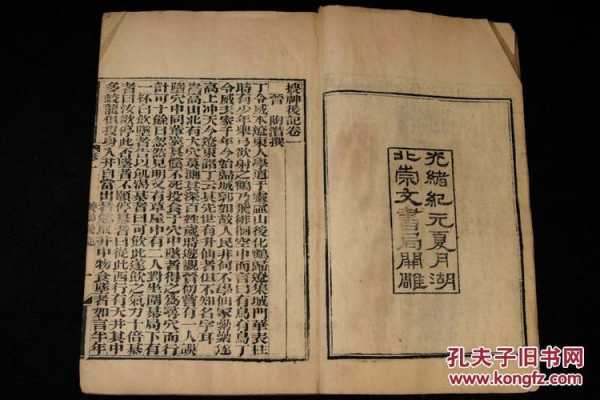 光緒紀元夏月湖
北崇文書局開雕
搜神後記卷一
晉 陶潛撰
丁令威本遼東人學道于靈虛山後化鶴歸遼集城門華表柱
時有少年舉弓欲射之鶴乃飛徘徊空中而言曰有鳥有鳥丁
令威去家千年今始歸城郭如故人民非何不學仙冢纍纍遂
高上冲天今遼東諸丁云其先世有升仙者但不知名字耳
嵩高山北有大穴莫測其深百姓歲時遊觀晉初嘗有一人誤
墮穴中同輩冀其儻不死投食于穴中墜者得之為尋穴而行
計可十餘日忽然見明又有草屋中有二人對坐圍棊局下有
一杯白飲墜者告以飢渴棊者曰可飲此遂飲之氣力十倍棊
者曰汝欲停此否墜者不願停棊者曰從此西行有天井其中
多蛟龍但投身入井自當出若餓取井中物食墜者如言半年
孔夫子旧书网
www.kongfz.com